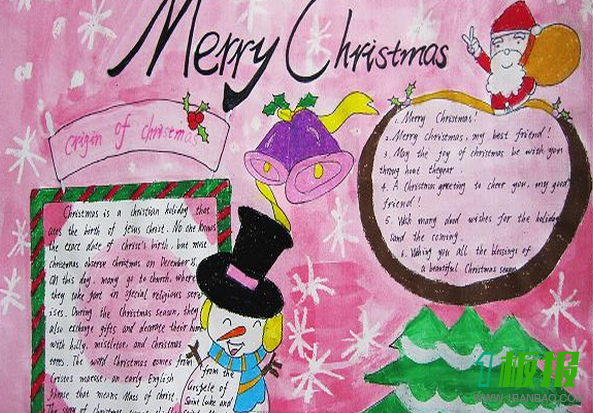 Merry Christmas
Origin of Christmas
Christmas is a christian holiday that
the birth of Jesus Christ. No one knows
the exact date of christ's birth, but most
christmas observe Christmas on December 25
On this day, many go to church, where
they take part in special religious serv
ises. During the Christmas season, they
also exchange gifts and decorate their home
with holly, misteltoe, and Christmas
trees. The word Christmas comes from
an early English
phrase that means Mass of christ.
The story of Christmas comes
from
Saint Luke and
1. Merry Christmas!
2. Merry christmas, my best friend!
3. May the joy of christmas be with you
throng hout theyear.
4. A Christmas greeting to cheer you, my good
friend!
5. With many good wishes for the holiday
and the coming.
6. Wishing you all the blessings of
a beautiful Christmas season.
1板报
WWW.1BANBAO.COM